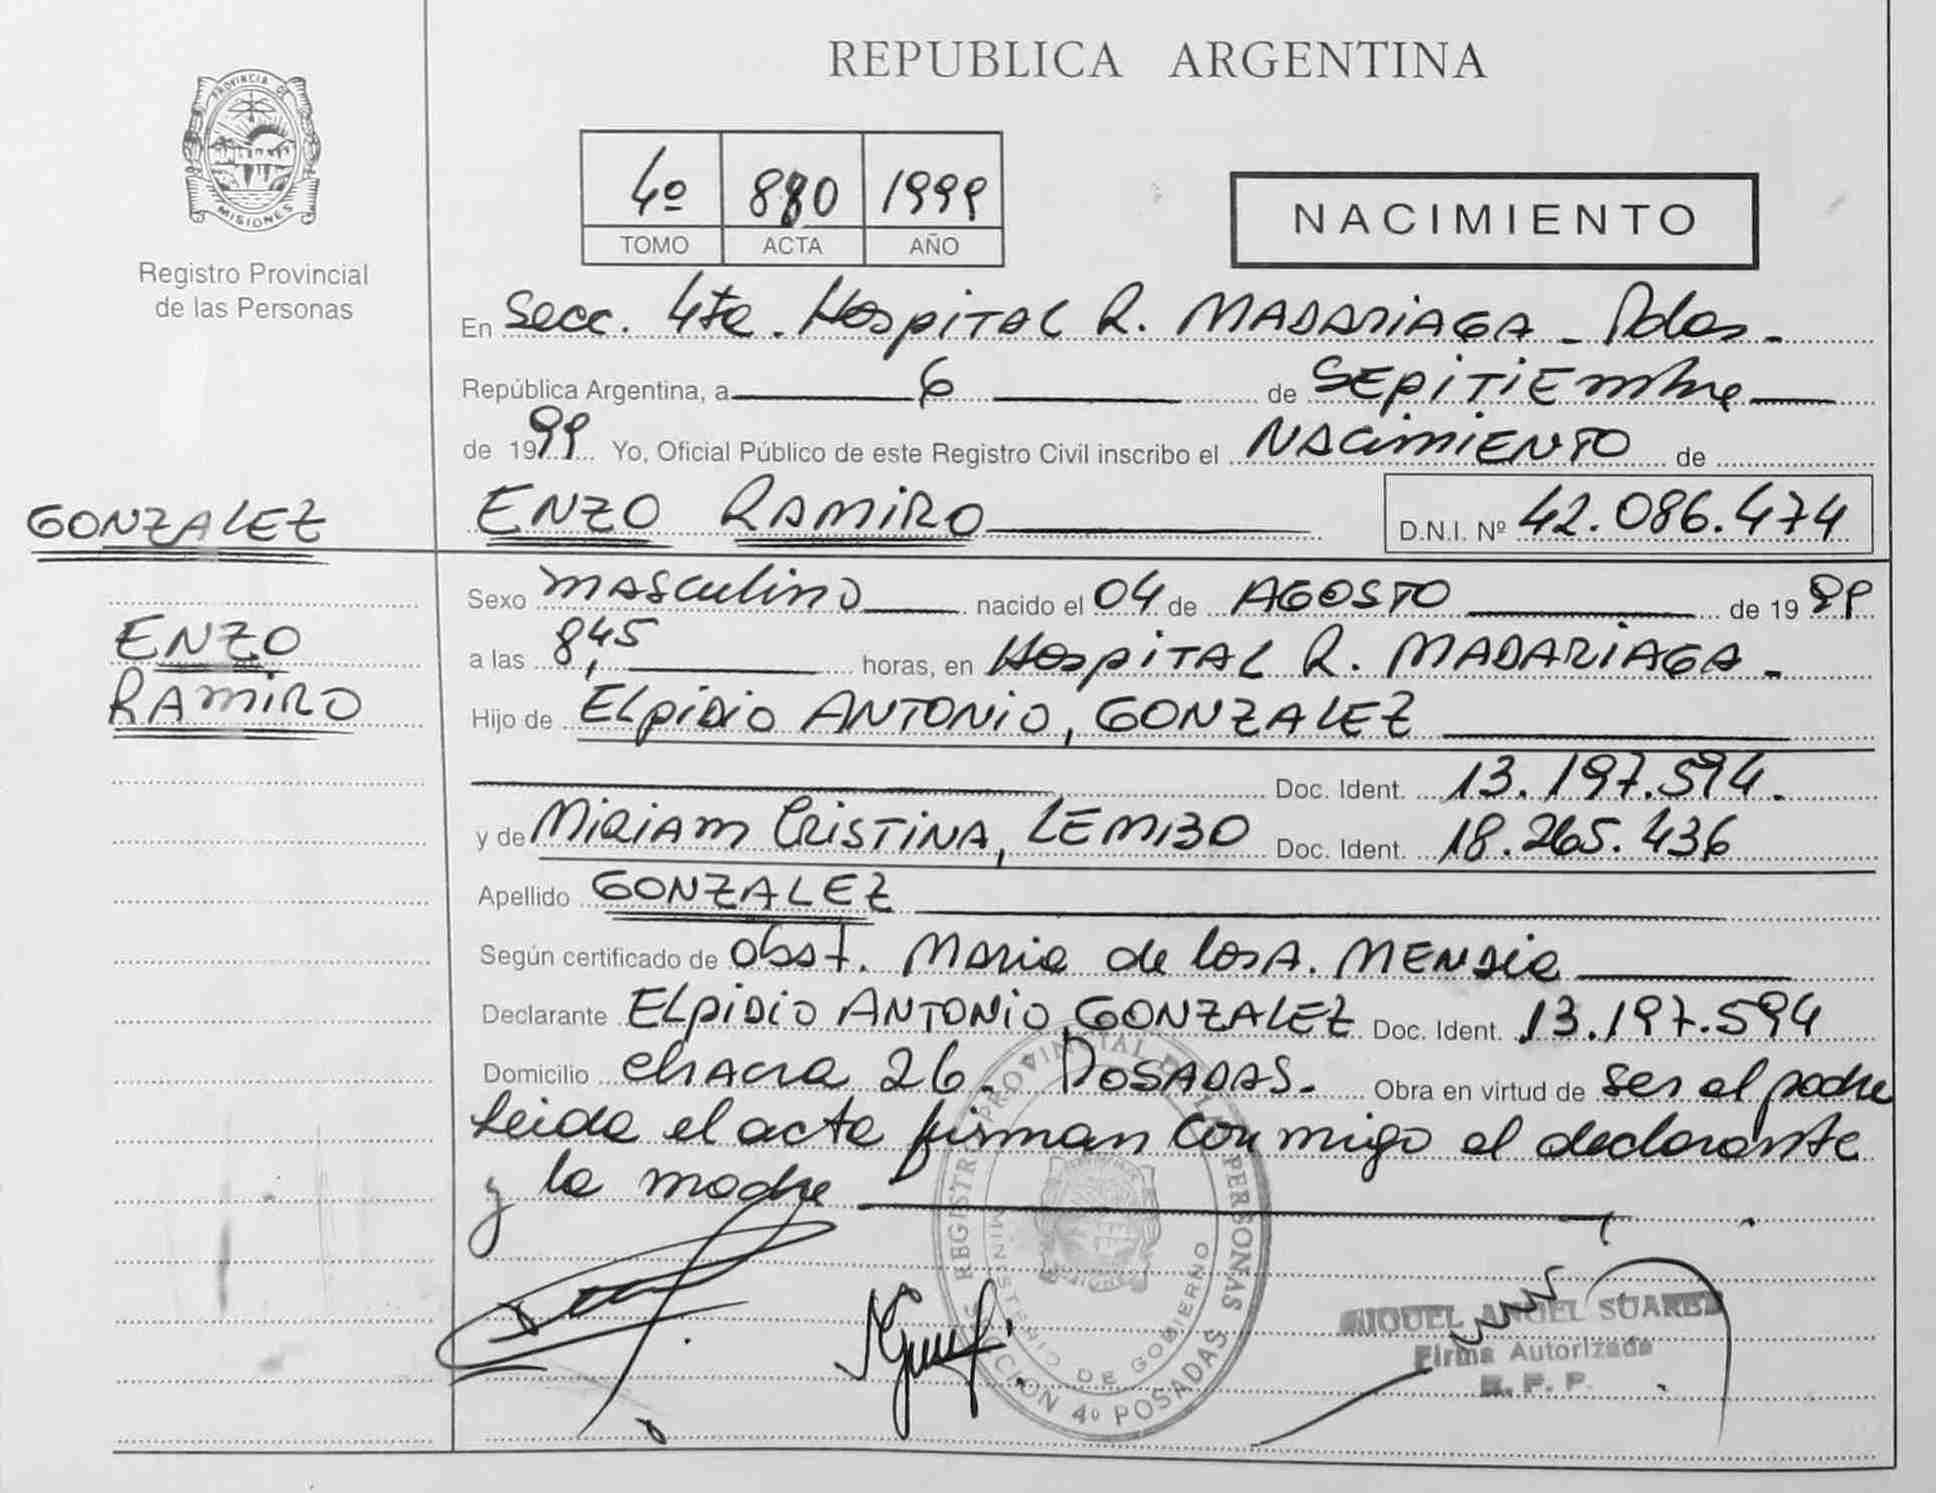 REPUBLICA ARGENTINA
PROVINCIA DE
MISIONES
Registro Provincial
de las Personas
4º 880 1999
TOMO ACTA AÑO
NACIMIENTO
En Secc. 4ta. Hospital R. MADARIAGA - Pdas.
República Argentina, a 6 de SEPTIEmbre
de 1999. Yo, Oficial Público de este Registro Civil inscribo el NACimiENTO de
GONZALEZ
ENZO RAMIRO D.N.I. Nº 42.086.474
Sexo mAsculino nacido el 04 de AGOSTO de 1999
ENZO
RAMIRO
a las 8,45 horas, en HospiTAL R. MADARIAGA.
Hijo de ELpidio ANTONIO, GONZALEZ
Doc. Ident. 13.197.594.
y de MiRiAm CRISTINA, LEMBO Doc. Ident. 18.265.436
Apellido GONZALEZ
Según certificado de obst. Maria de los A. MENDIA
Declarante ELpidio ANTONIO, GONZALEZ Doc. Ident. 13.197.594
Domicilio chAcra 26. POSADAS. Obra en virtud de ser el padre
Leida el acta firman conmigo el declarante
y la madre
REGISTRO PROVINCIAL DE LAS PERSONAS
MINISTERIO DE GOBIERNO
SECCION 4º POSADAS
MIGUEL ANGEL SUAREZ
Firma Autorizada
R. P. P.